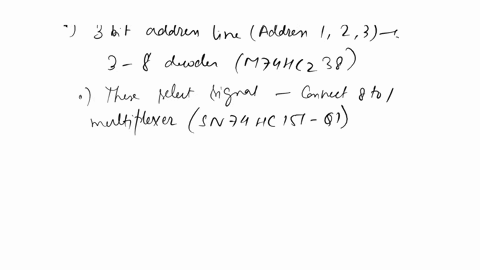 •) 3 bit address line (Address 1, 2, 3) →
3 - 8 decoder (M74HC238)
•) These select signal – Connect 8 to 1
multiplexer (SN74HC151-Q1)